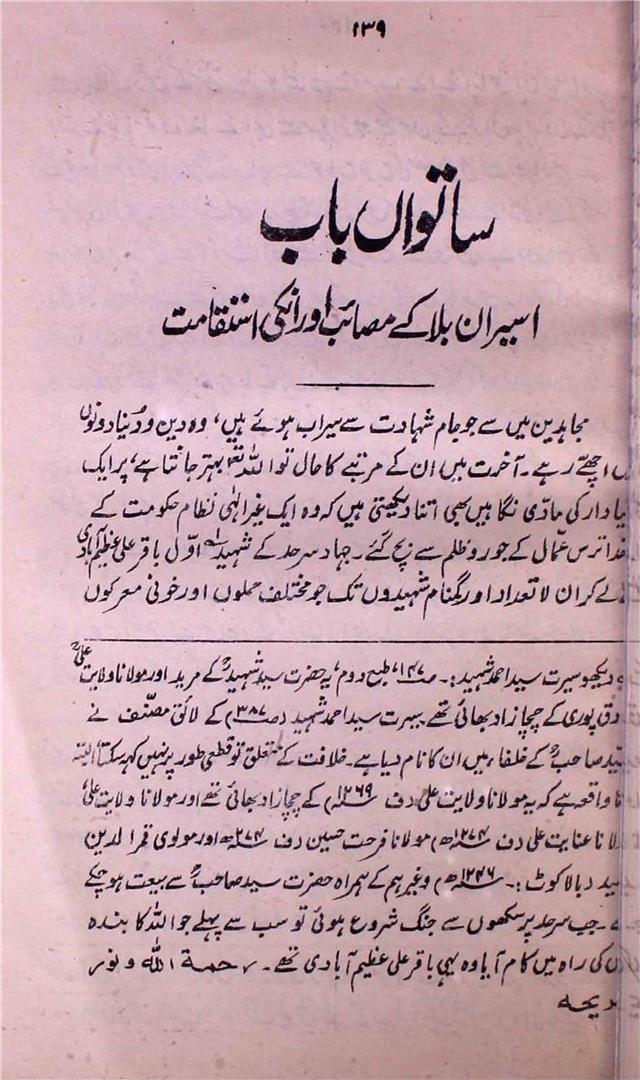 ۱۳۹
ساتواں باب
اسیران بلا کے مصائب اور انکی استقامت
مجاہدین میں سے جو جام شہادت سے سیراب ہوئے ہیں، وہ دین و دُنیا دونوں
اچھے رہے۔ آخرت میں ان کے مرتبے کا حال تو اللہ تعہ بہتر جانتا ہے، پر ایک
دار کی مادّی نگاہیں بھی اتنا دیکھتی ہیں کہ وہ ایک غیر الٰہی نظام حکومت کے
ترس عمّال کے جور و ظلم سے بچ گئے۔ جہاد سرحد کے شہید اوّل باقر علی عظیم آبادی
لے کر ان لا تعداد اور گمنام شہیدوں تک جو مختلف حملوں اور خونی معرکوں
دیکھو سیرت سید احمد شہید:۔ ص۱۴۷، طبع دوم، یہ حضرت سید شہیدؒ کے مرید اور مولانا ولایت علیؒ
پوری کے چچا زاد بھائی تھے سیرت سید احمد شہید (ص۳۸۷) کے لائق مصنّف نے
صاحبؒ کے خلفاء میں ان کا نام دیا ہے۔ خلافت کے متعلق تو قطعی طور پر نہیں کہہ سکتا البتہ
واقعہ ہے کہ یہ مولانا ولایت علی (ف ۱۲۶۹ھ) کے چچا زاد بھائی تھے اور مولانا ولایت علیؒ
عنایت علی (ف ۱۲۷۴ھ) مولانا فرحت حسین (ف ۱۲۷۴ھ) اور مولوی قمر الدین
(بالاکوٹ:۔ ۱۲۴۶ھ) وغیرہم کے ہمراہ حضرت سید صاحبؒ سے بیعت ہو چکے
۔ جب سرحد پر سکھوں سے جنگ شروع ہوئی تو سب سے پہلے جو اللہ کا بندہ
کی راہ میں کام آیا وہ یہی باقر علی عظیم آبادی تھے۔ رحمة اللہ و نور